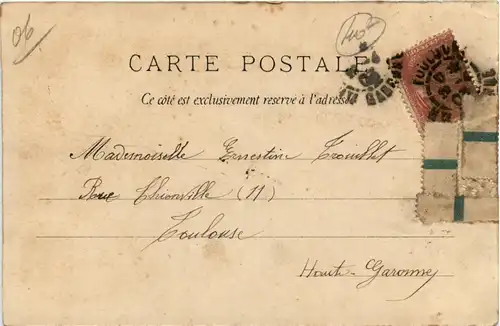 06
CARTE POSTALE
Ce côté est exclusivement reservé à l'adresse
Mademoiselle Ernestine Trouillet
Rue Thionville (11)
Toulouse
Haute-Garonne